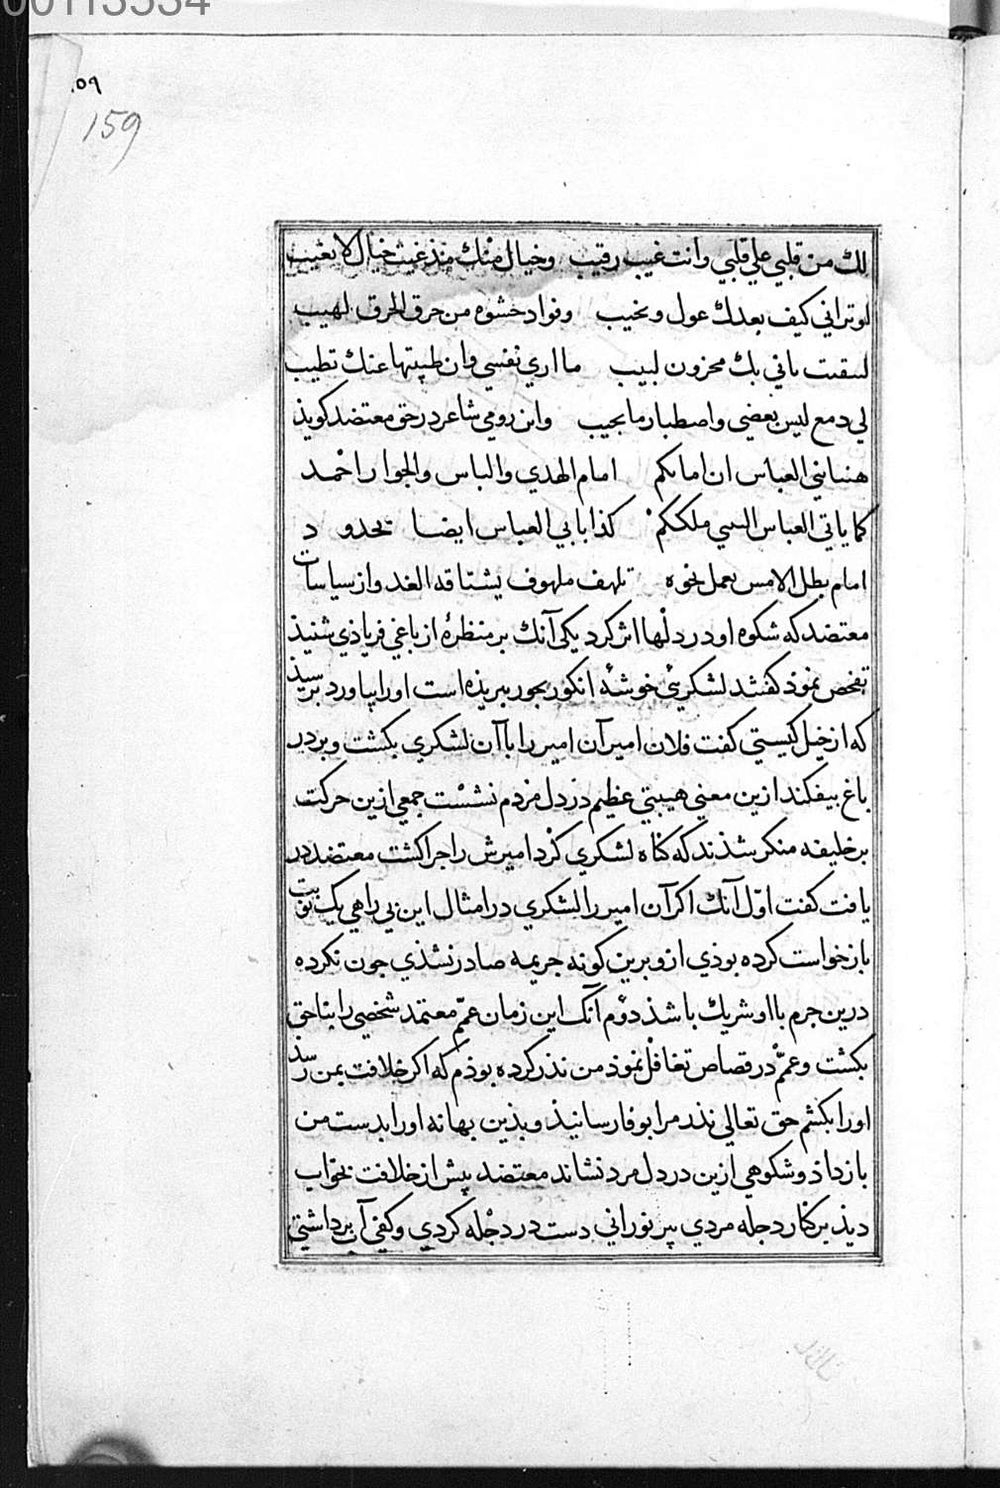 00113534
۰۵۹
159
لك من قلبي علي قلبي وانت غيب رقيب وخيال منك مذغيت خيال لا يغيب
لو تراني كيف بعدك عول ونحيب وفواد حشوه من حرق الحرق لهيب
لىىقىت باني بك محزون لبيب ما اري نفسي وان طيبتها عنك تطيب
لي دمع ليس بعضي واصطبار ما يجيب وابن رومي شاعر در حق معتضد كويذ
هنيا بني العباس ان امامكم امام الهدي والباس والجوار احمد
كما ياتي العباس السي ملككم كذا بابي العباس ايضا يحدو د
امام بطل الامس يعمل نحوه تلهف ملهوف يشتاقه الغد واز سياسات
معتضد كه شكوه او در دلها اثر كرد يكي آنك بر منظرهٔ از باغي فرياذي شنيذ
تفحص نموذ كفتند لشكريئ خوشهٔ انكور بجور ببريذه است اورا بياورد برسيذ
كه از خيل كيستي كفت فلان امير آن امير را با آن لشكري بكشت و بر در
باغ بيفكند ازين معني هيبتي عظيم در دل مردم نشست جمعي ازين حركت
بر خليفه منكر شذند كه كناه لشكري كرد اميرش را جرا كشت معتضد در
يافت كفت اوّل آنك اكر آن امير را لشكري در امثال اين بي راهي يك نوبت
بازخواست كرده بوذي ازو برين كونه جريمه صادر نشذي جون نكرده
درين جرم با او شريك باشذ دوم آنك اين زمان عمّم معتمد شخصي را بناحق
بكشت و عمّم در قصاص تغافل نموذ من نذر كرده بوذم كه اكر خلافت بمن رسذ
اورا بكشم حق تعالي نذر مرا بوفا رسانيذ و بذين بهانه اورا بدست من
بازداذ و شكوهي ازين در دل مرد نشاند معتضد پيش از خلافت بخواب
ديذ بر كنار دجله مردي پير نوراني دست در دجله كردي و كفي آب برداشتي